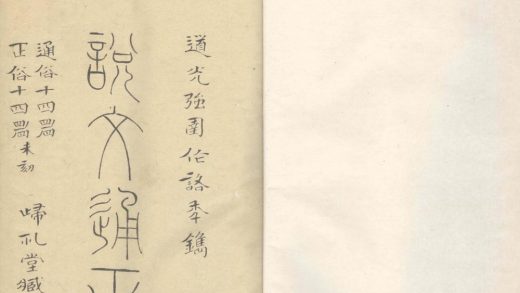 道光強圉作詻秊鐫
說文通正
通俗十四篇
正俗十四篇未刻
礼堂臧